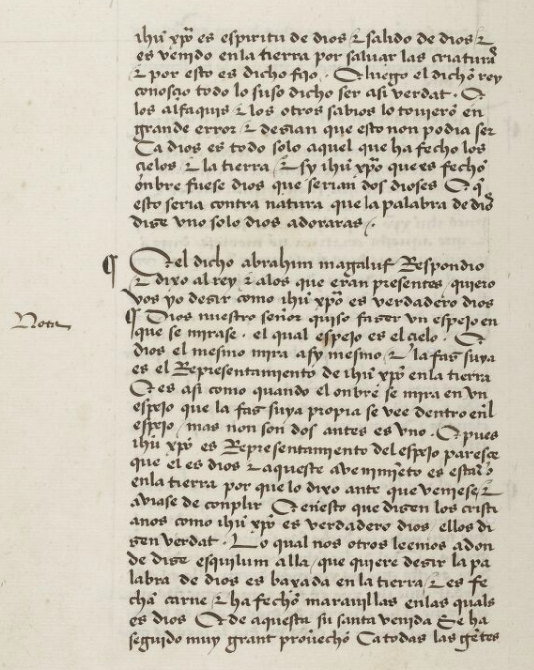 ihū xp̄o es espiritu de dios ⁊ salido de dios ⁊
es venido enla tierra por saluar las criaturas
⁊ por esto es dicho fijo . E luego el dicho rey
conoscio todo lo suso dicho ser asi verdat . E
los alfaquis ⁊ los otros sabios lo touierō en
grande error ⁊ desian que esto non podia ser
Ca dios es todo solo aquel que ha fecho los
cielos ⁊ la tierra / ⁊ sy ihū xp̄o que es fecho
ōnbre fuese dios que serian dos dioses E q̄
esto seria contra natura que la palabra de dios
dise vno solo dios adoraras /.
¶ E el dicho abrahim magaluf Respondio
⁊ dixo al rey ⁊ alos que eran presentes / quiero
vos yo desir como ihū xp̄o es verdadero dios
¶ Dios nuestro señor quiso faser vn espejo en
Nota
que se mirase . el qual espejo es el cielo . E
dios el mesmo mira asy mesmo / ⁊ la fas suya
es el Representamiento de ihū xp̄o enla tierra
E es asi como quando el onbre se mira en vn
espejo que la fas suya propia se vee dentro enl
espejo / mas non son dos antes es vno . E pues
ihū xp̄o es Representamiento del espejo paresce
que el es dios ⁊ aqueste avenimīeto es estado
enla tierra por que lo dixo ante que veniese / ⁊
aviase de conplir E enesto que disen los cristi
anos como ihū xp̄o es verdadero dios / ellos di
sen verdat . Lo qual nos otros leemos adon
de dise esquilum alla / que quiere desir la pa
labra de dios es baxada en la tierra / ⁊ es fe
cha carne / ⁊ ha fecho marauillas enlas quals
es dios E de aquesta su santa venida se ha
seguido muy grant prouecho Ca todas las gētes